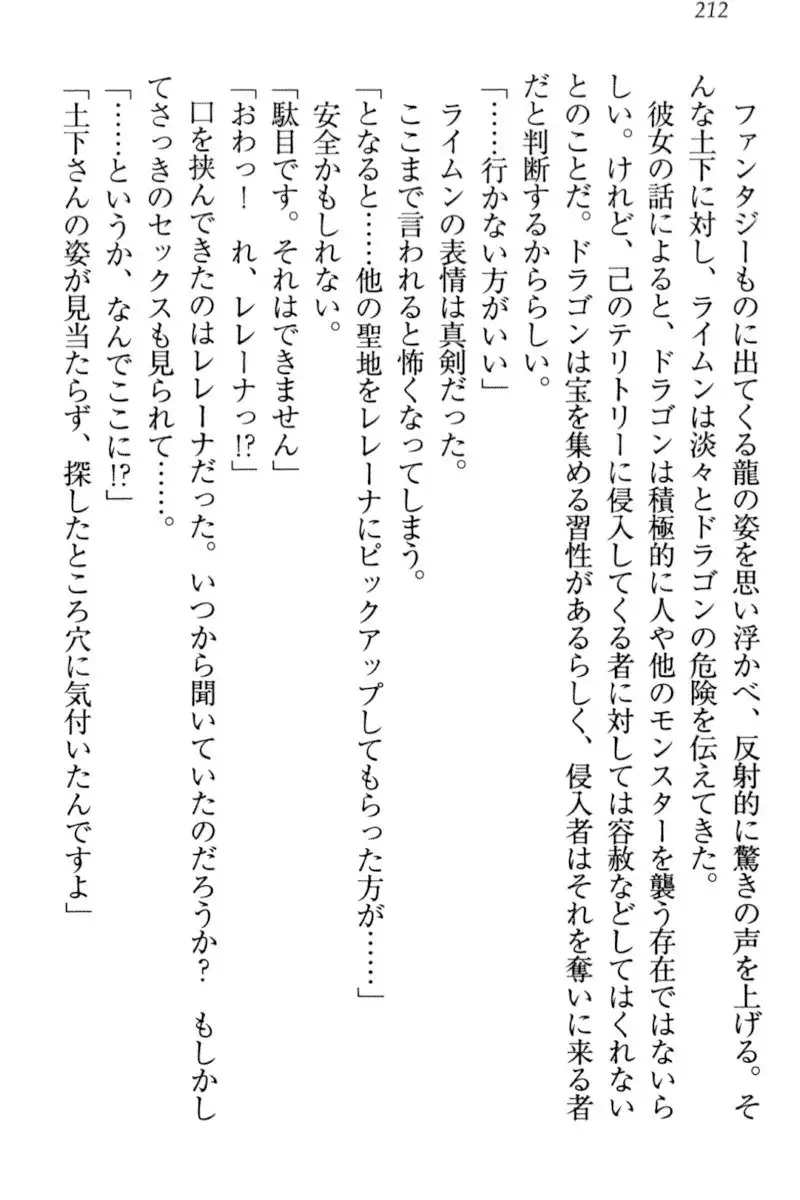 212
　ファンタジーものに出てくる龍の姿を思い浮かべ、反射的に驚きの声を上げる。そ
んな土下に対し、ライムンは淡々とドラゴンの危険を伝えてきた。
　彼女の話によると、ドラゴンは積極的に人や他のモンスターを襲う存在ではないら
しい。けれど、己のテリトリーに侵入してくる者に対しては容赦などしてはくれない
とのことだ。ドラゴンは宝を集める習性があるらしく、侵入者はそれを奪いに来る者
だと判断するかららしい。
「……行かない方がいい」
　ライムンの表情は真剣だった。
　ここまで言われると怖くなってしまう。
「となると……他の聖地をレレーナにピックアップしてもらった方が……」
　安全かもしれない。
「駄目です。それはできません」
「おわっ！　れ、レレーナっ!?」
　口を挟んできたのはレレーナだった。いつから聞いていたのだろうか？　もしかし
てさっきのセックスも見られて……。
「……というか、なんでここに!?」
「土下さんの姿が見当たらず、探したところ穴に気付いたんですよ」